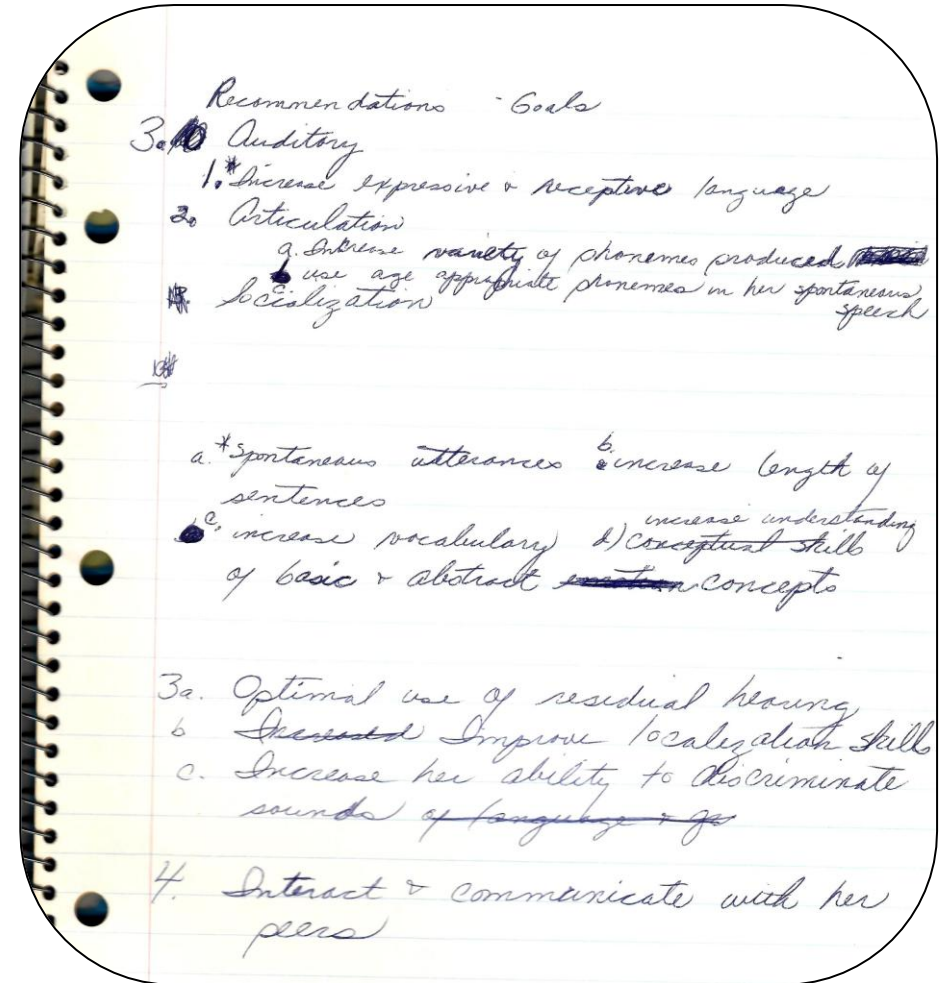 Recommendations - Goals
3. Auditory
1. * Increase expressive & receptive language
2. Articulation
a. Increase variety of phonemes produced
b use age appropriate phonemes in her spontaneous
speech
Socialization
a. * Spontaneous utterances b. increase length of
sentences
c. increase vocabulary d) conceptual skills
increase understanding
of basic & abstract concepts
3a. Optimal use of residual hearing
b Increased Improve localization skills
c. Increase her ability to discriminate
sounds of language &
4. Interact & communicate with her
peers